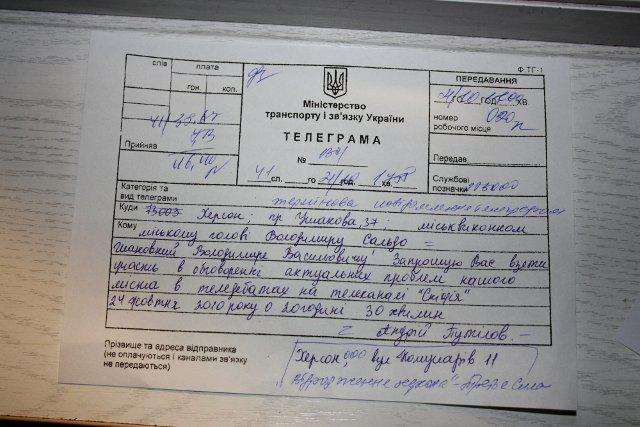 Ф.ТГ-1
слів
плата
грн.
коп.
Прийняв
Міністерство
транспорту і зв'язку України
ТЕЛЕГРАМА
№
41 сл. го 21/10 год. хв.
ПЕРЕДАВАННЯ
го год. хв.
номер
робочого місця
Передав
Службові
позначки
Категорія та
вид телеграми
термінова
Куди 73003 Херсон, пр Ушакова, 37, міськвиконком
Кому міському голові Володимиру Сальдо =
Шановний Володимире Васильовичу! Запрошую Вас взяти
участь в обговоренні актуальних проблем нашого
міста в теледебатах на телеканалі "Скіфія"
24 жовтня 2010 року о 20 годині 30 хвилин
Андрій Путілов. —
Прізвище та адреса відправника
(не оплачуються і каналами зв'язку
не передаються)
Херсон, 000 вул Комунарів 11